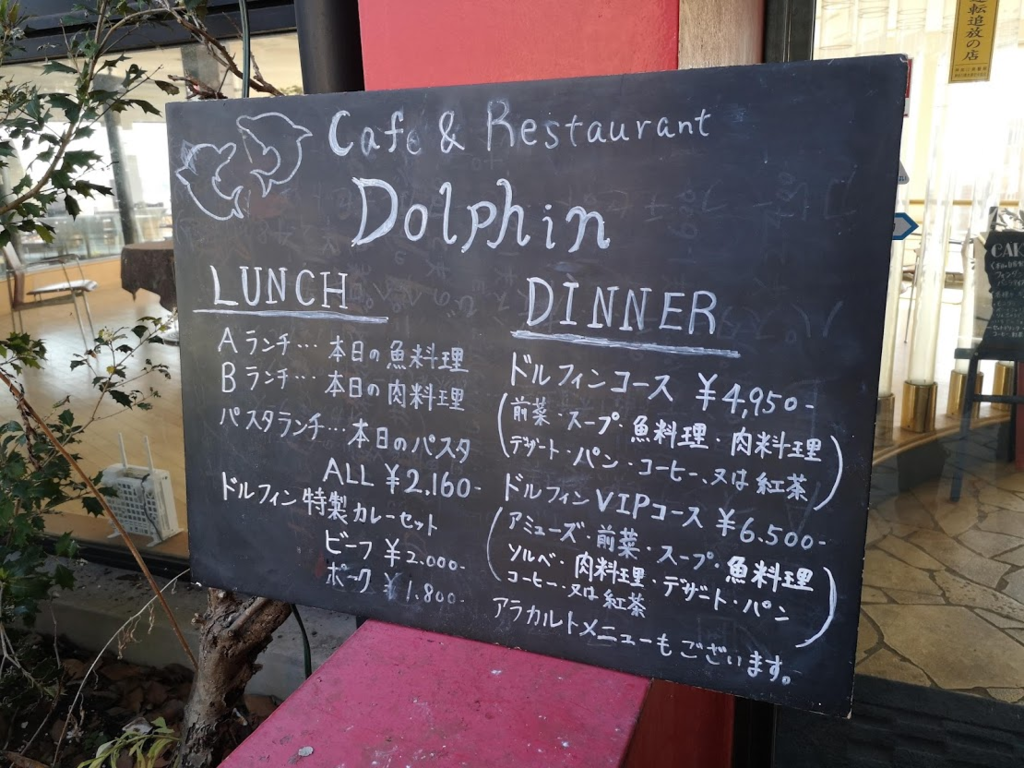 Cafe & Restaurant
Dolphin
LUNCH
Aランチ… 本日の魚料理
Bランチ… 本日の肉料理
パスタランチ…本日のパスタ
ALL ¥2.160-
ドルフィン特製カレーセット
ビーフ ¥2.000-
ポーク ¥1.800-
DINNER
ドルフィンコース ¥4,950-
(前菜・スープ・魚料理・肉料理
デザート・パン・コーヒー、又は紅茶)
ドルフィンVIPコース ¥6.500-
(アミューズ・前菜・スープ・魚料理
ソルベ・肉料理・デザート・パン
コーヒー、又は紅茶)
アラカルトメニューもございます。
転追放の店
CAK